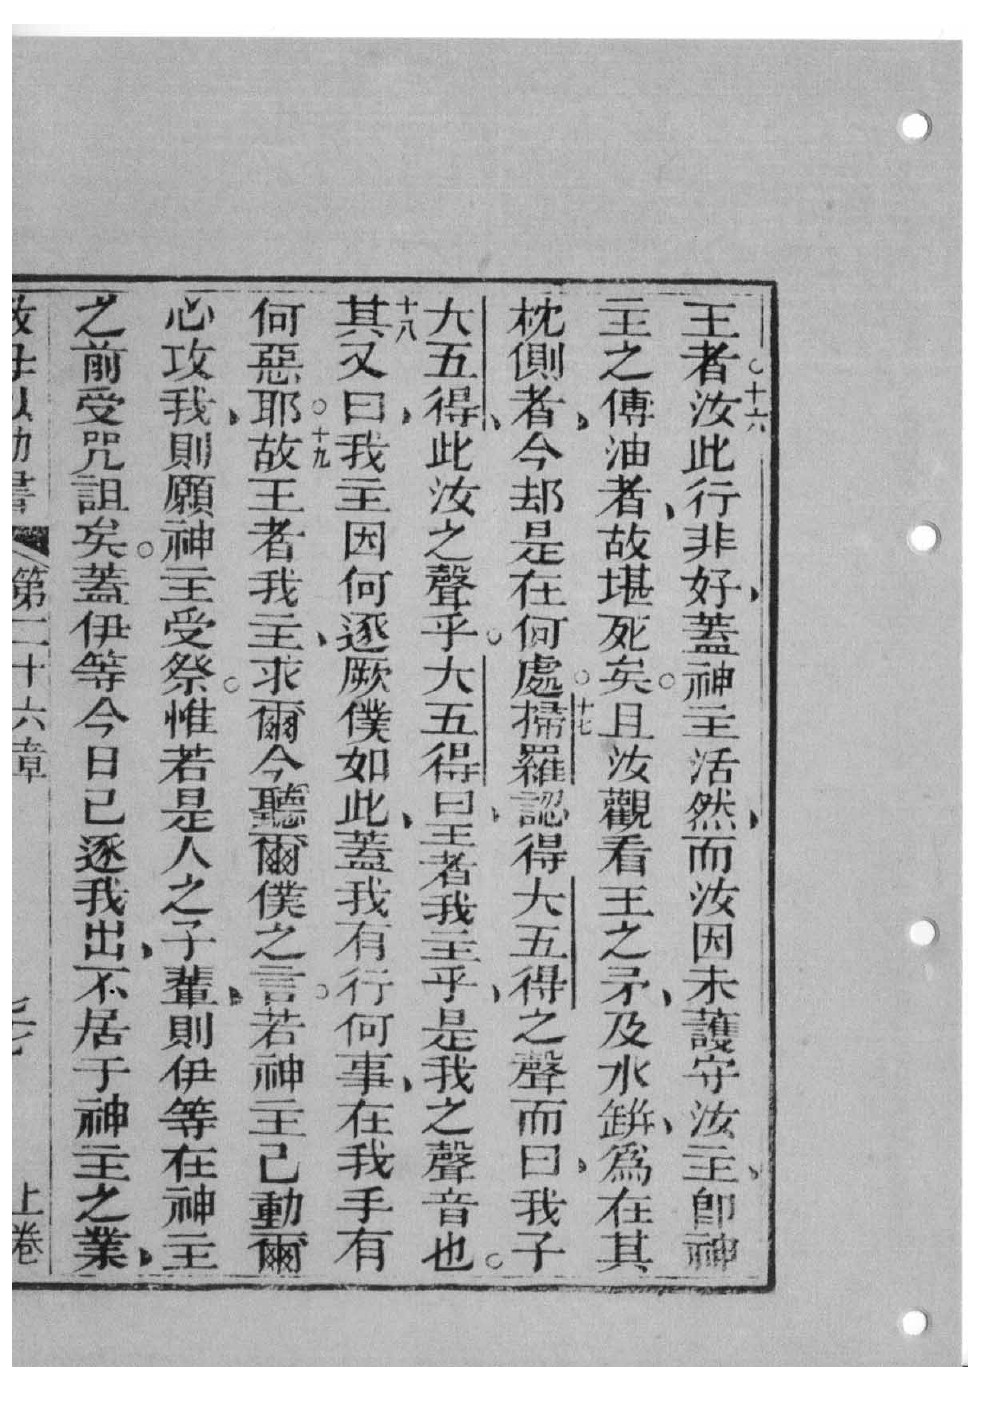 王者○十六汝此行非好、蓋神主活然、而汝因未護守汝主、卽神
主之傅油者、故堪死矣○十七且汝觀看王之矛、及水缾、爲在其
枕側者、今却是在何處○掃羅認得大五得之聲而曰、我子
大五得、此汝之聲乎○大五得曰、王者我主乎、是我之聲音也○
十八其又曰、我主因何逐厥僕如此、蓋我有行何事、在我手有
何惡耶○十九故王者我主、求爾今聽爾僕之言○若神主己動爾
心攻我、則願神主受祭○惟若是人之子輩、則伊等在神主
之前受咒詛矣○蓋伊等今日已逐我出、不居于神主之業、
第二十六章 上卷